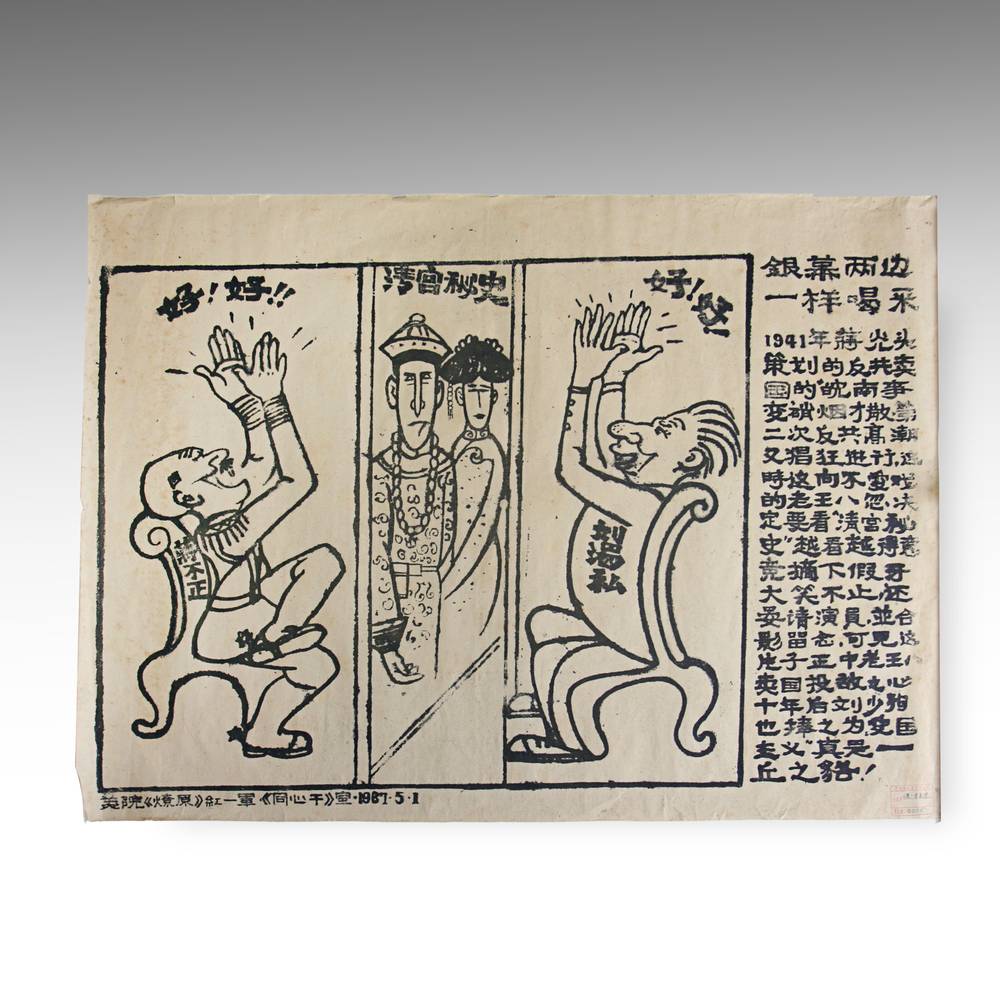 好!好!!
清宮秘史
好!好!
蔣不正
刘湯私
銀幕两边
一样喝采
1941年蔣光头
策划的反共卖
国的"皖南事
变"硝烟才散,第
二次反共高潮
又猖狂进行,
時这向不爱
的老王八忽决
定要看"清宮秘
史"越看越得意
竟摘下假牙
大笑不止,还
宴请演員並合
影留念可见这
片子正中老王八
卖国投敌之心
十年后刘少狗
也捧之为"爱国
主义"真是一
丘之貉!
美院《燎原》紅一軍《同心干》宣·1967·5·1